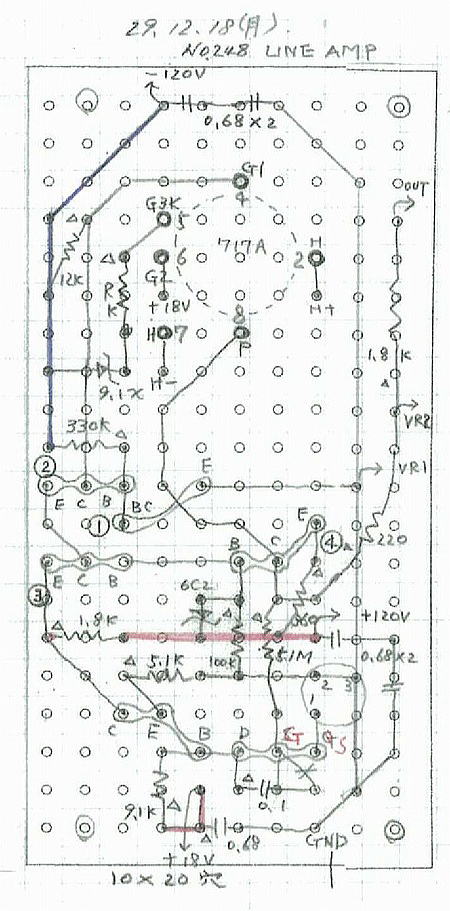 29.12.18(月).
NO.248 LINE AMP
-120V
0.68×2
G1
4
OUT
G3K
5
717A
6
H
2
G2
12K
R
K
+18V
H+
8
H
7
P
1.8K
H-
9.1K
VR2
330K
2
E
VR1
E C B
BC
1
E
4
220
B
C
E C B
6C2
3
+120V
1.8K
5.1M
0.68×2
5.1K
100K
2
3
1
C
E
B
D
G
S
0.1
9.1K
0.68
GND
+18V
10×20穴